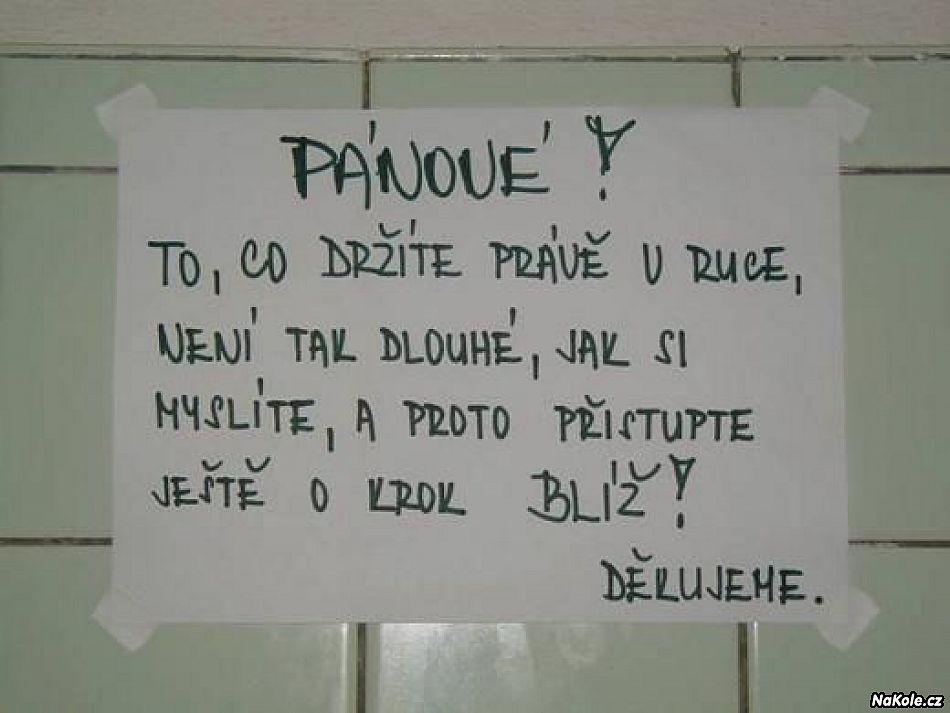 PÁNOVÉ!
TO, CO DRŽÍTE PRÁVĚ V RUCE,
NENÍ TAK DLOUHÉ, JAK SI
MYSLÍTE, A PROTO PŘISTUPTE
JEŠTĚ O KROK BLÍŽ!
DĚKUJEME.
NaKole.cz